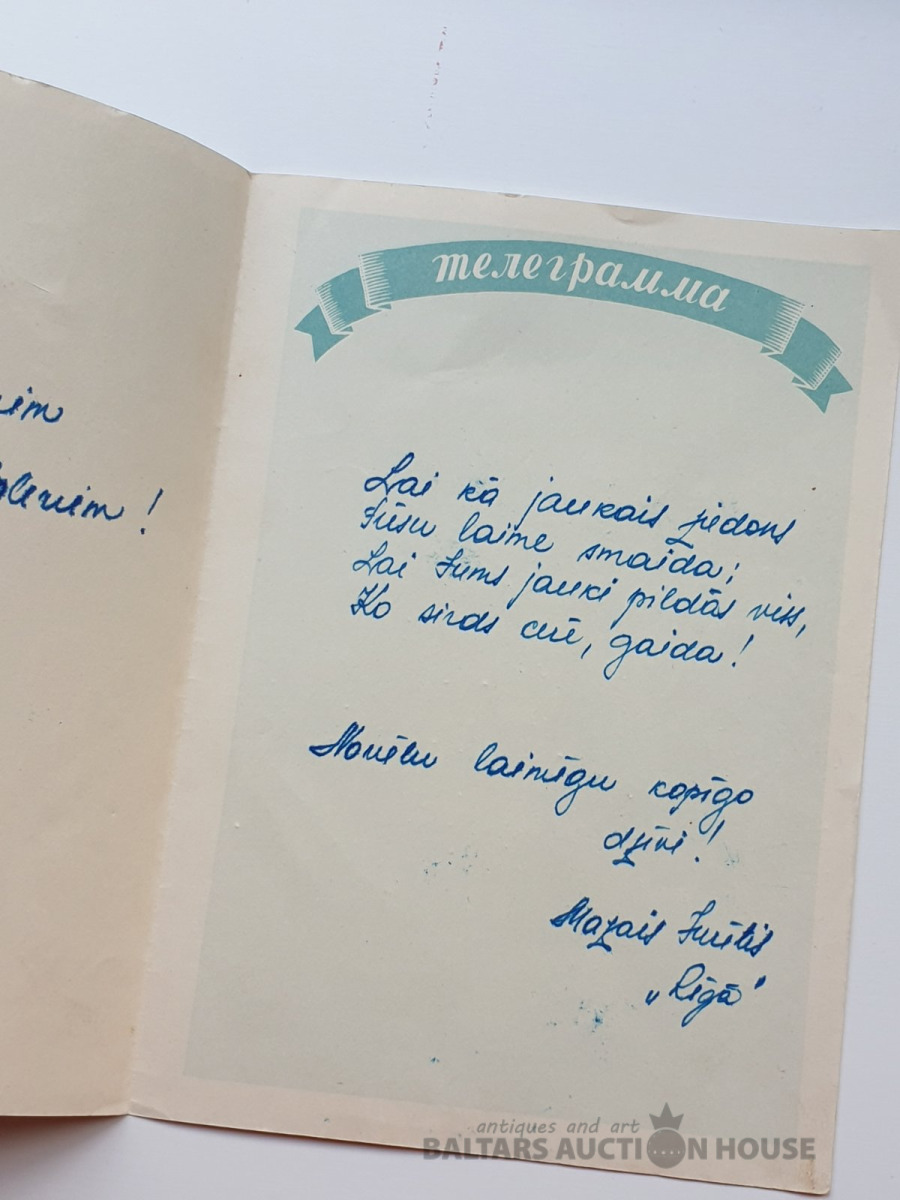 телеграмма
Lai kā jaukais ziedons
Jūsu laime smaida;
Lai Jums jauki pildās viss,
Ko sirds cerē, gaida!
Novēlu laimīgu kopīgo
dzīvi!
Mazais
„Rīgā"
antiques and art
BALTARS AUCTION HOUSE